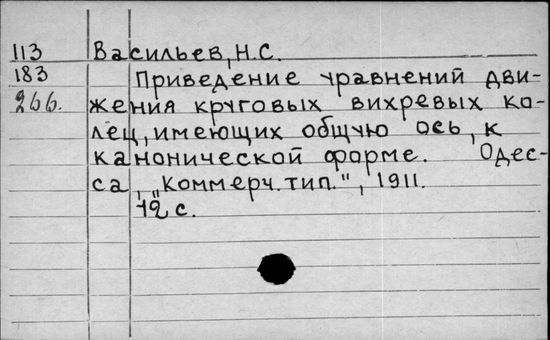 113 Васильев, Н.С.
183 Приведение уравнений дви-
266. жения круговых вихревых ко-
лец, имеющих общую ось, к
канонической форме. Одес-
са, "Коммерч. тип.", 1911.
12 с.